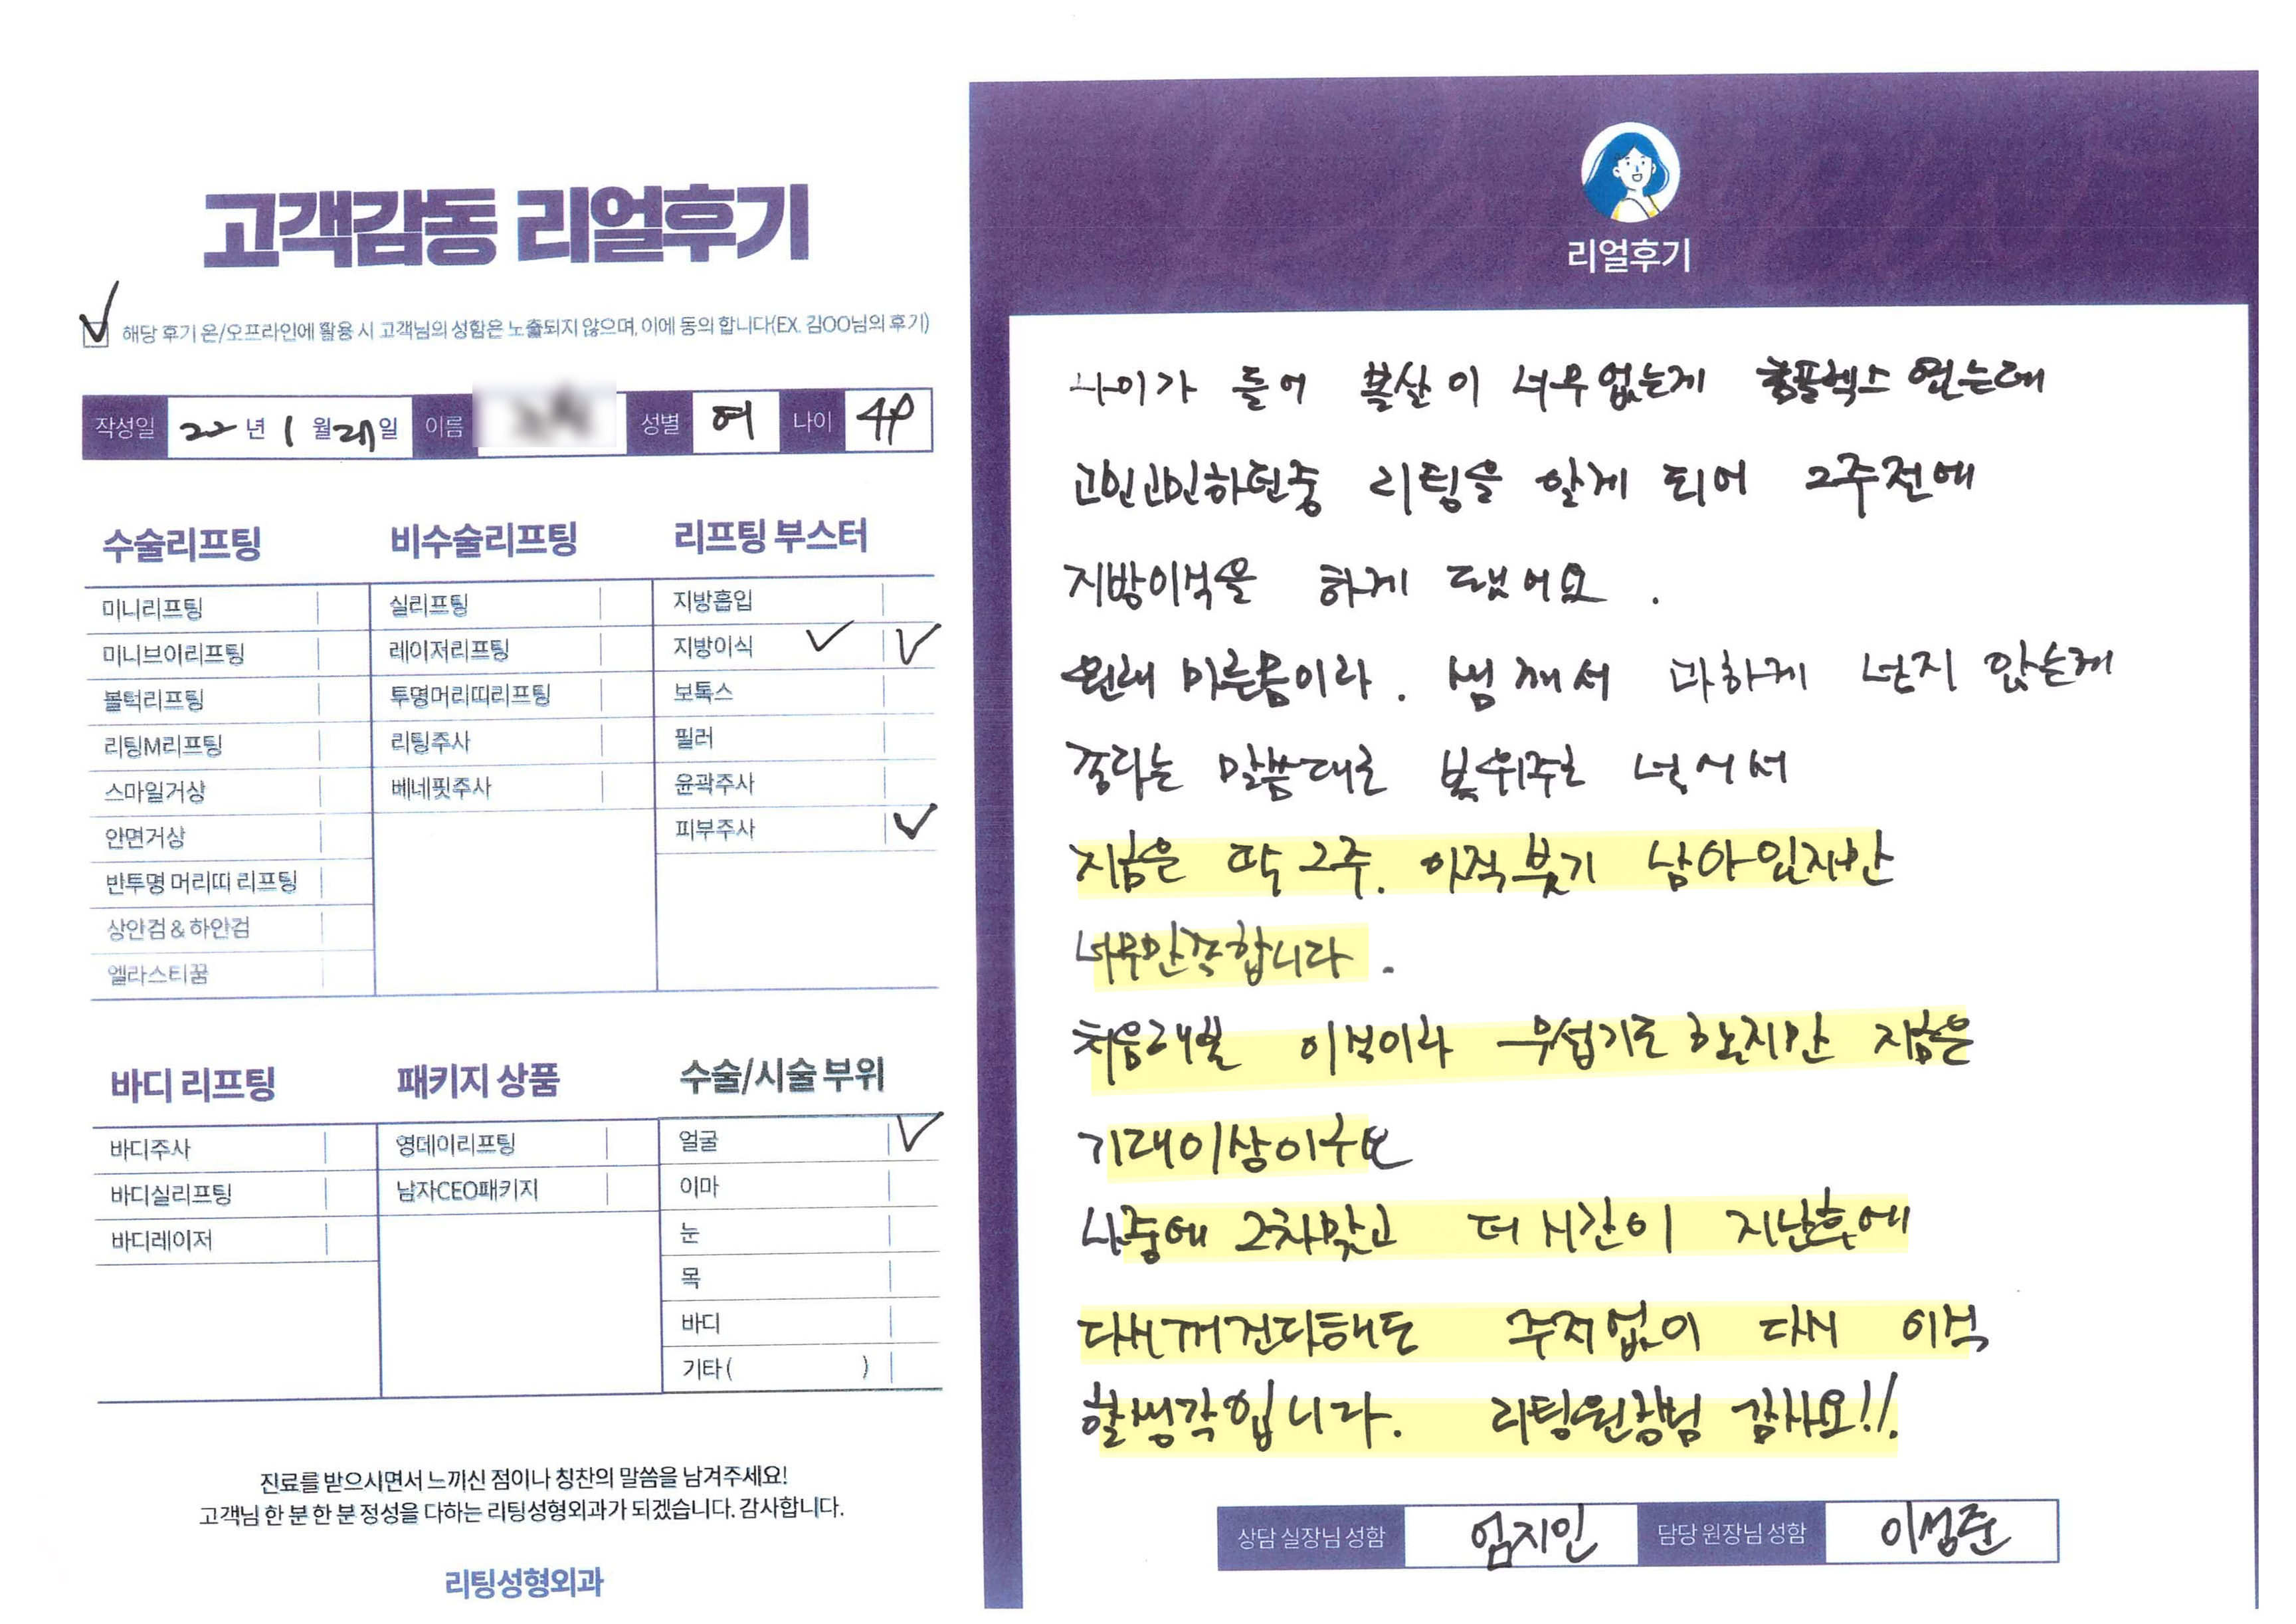 고객감동 리얼후기
해당 후기 온/오프라인에 활용 시 고객님의 성함은 노출되지 않으며, 이에 동의 합니다(EX. 김OO님의 후기)
작성일 22 년 1 월 21 일 이름 성별 여 나이 49
수술리프팅
미니리프팅
미니브이리프팅
볼턱리프팅
리팅M리프팅
스마일거상
안면거상
반투명 머리띠 리프팅
상안검 & 하안검
엘라스티꿈
비수술리프팅
실리프팅
레이저리프팅
투명머리띠리프팅
리팅주사
베네핏주사
리프팅 부스터
지방흡입
지방이식
보톡스
필러
윤곽주사
피부주사
바디 리프팅
바디주사
바디실리프팅
바디레이저
패키지 상품
영데이리프팅
남자CEO패키지
수술/시술 부위
얼굴
이마
눈
목
바디
기타 ( )
진료를 받으시면서 느끼신 점이나 칭찬의 말씀을 남겨주세요!
고객님 한 분 한 분 정성을 다하는 리팅성형외과가 되겠습니다. 감사합니다.
리팅성형외과
리얼후기
나이가 들어 볼살이 너무없는게 콤플렉스 였는데
고민고민하던중 리팅을 알게 되어 2주전에
지방이식을 하게 됐어요.
원래 마른몸이라. 쌤께서 과하게 넣지 않는게
좋다는 말씀대로 넣어서
지금은 딱 2주. 아직 붓기 남아있지만
너무만족합니다.
처음해본 이식이라 무섭기도 했지만 지금은
기대이상이구요
나중에 2차맞고 더 시간이 지난후에
다시꺼진다해도 주저없이 다시 이식
할생각입니다. 리팅원장님 감사요!!
상담 실장님 성함 엄지인 담당 원장님 성함 이성준